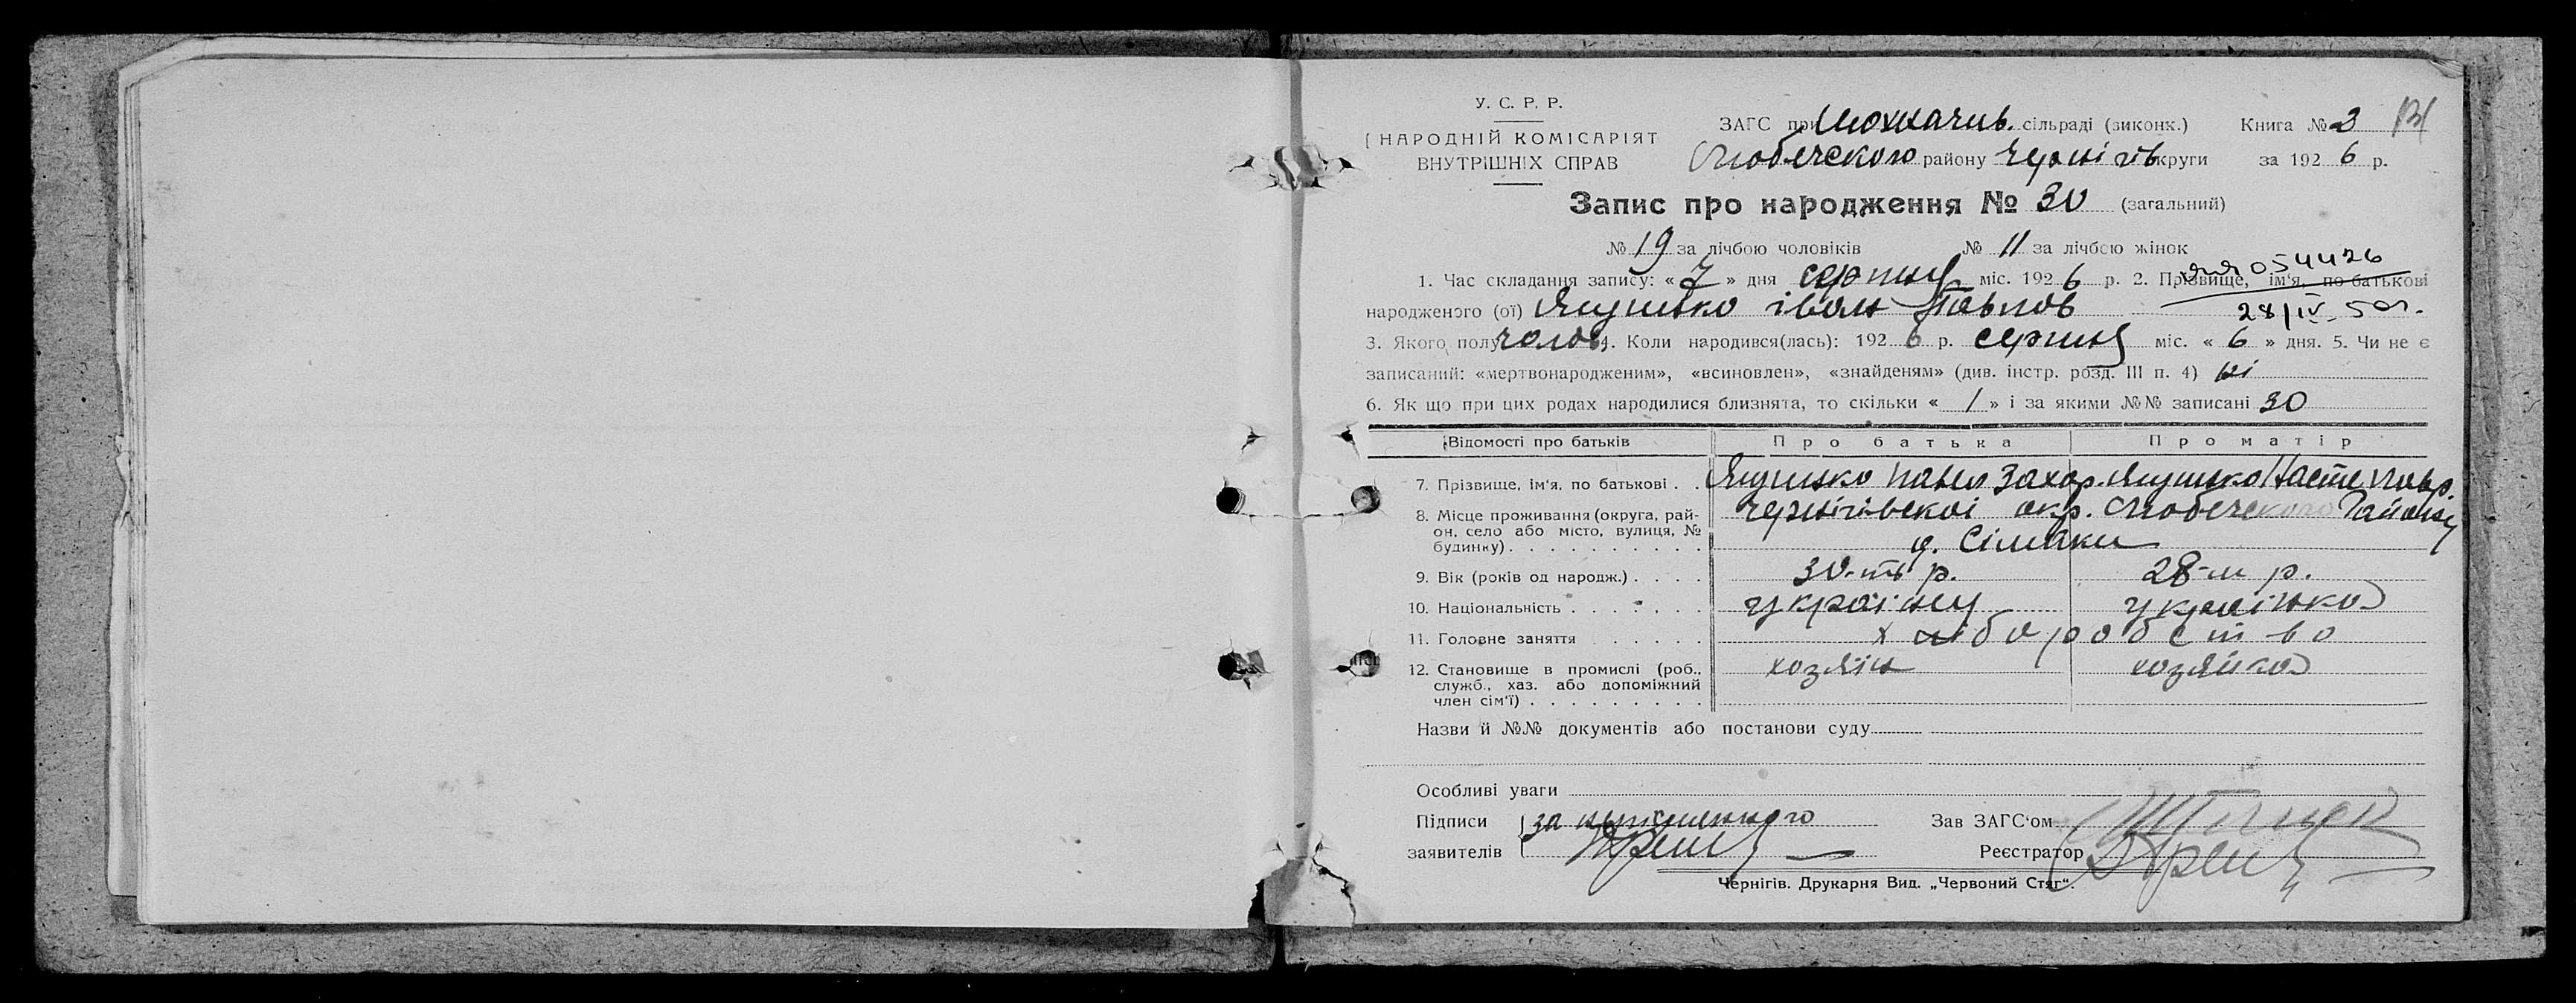 У. С. Р. Р.
НАРОДНІЙ КОМІСАРІЯТ
ВНУТРІШНІХ СПРАВ
ЗАГС при Мохначів. сільраді (виконк.) Книга № 3
Любечского району Чернігів округи за 1926 р.
Запис про народження № 30 (загальний)
№ 19 за лічбою чоловіків № 11 за лічбою жінок
1. Час складання запису: « 7 » дня серпня міс. 1926 р. 2. Прізвище, ім'я, по батькові
054426
народженого (ої) Якушко Іван Павлов
28/IV-50г.
3. Якого полу чолов 4. Коли народився(лась): 1926 р. серпня міс. « 6 » дня. 5. Чи не є
записаний: «мертвонародженим», «всиновлен», «знайденям» (див. інстр. розд. III п. 4) ні
6. Як що при цих родах народилися близнята, то скільки « 1 » і за якими №№ записані 30
Відомості про батьків Про батька Про матір
7. Прізвище, ім'я, по батькові . . Якушко Павел Захар. Якушко Настя
8. Місце проживання (округа, рай-
он, село або місто, вулиця, №
будинку) . . . . . . . . . .
Чернігівскоі окр. Любечского Району
д. Сімаки
9. Вік (років од народж.) . . . . 30-ть р. 28-м р.
10. Національність . . . . . . . украінец украінка
11. Головне заняття . . . . . . хліборобство
12. Становище в промислі (роб.,
служб., хаз. або допоміжний
член сім'ї) . . . . . . . . .
хозяін хозяйка
Назви й №№ документів або постанови суду
Особливі уваги
Підписи за
заявителів
Зав ЗАГС'ом
Реєстратор
Чернігів. Друкарня Вид. „Червоний Стяг“.